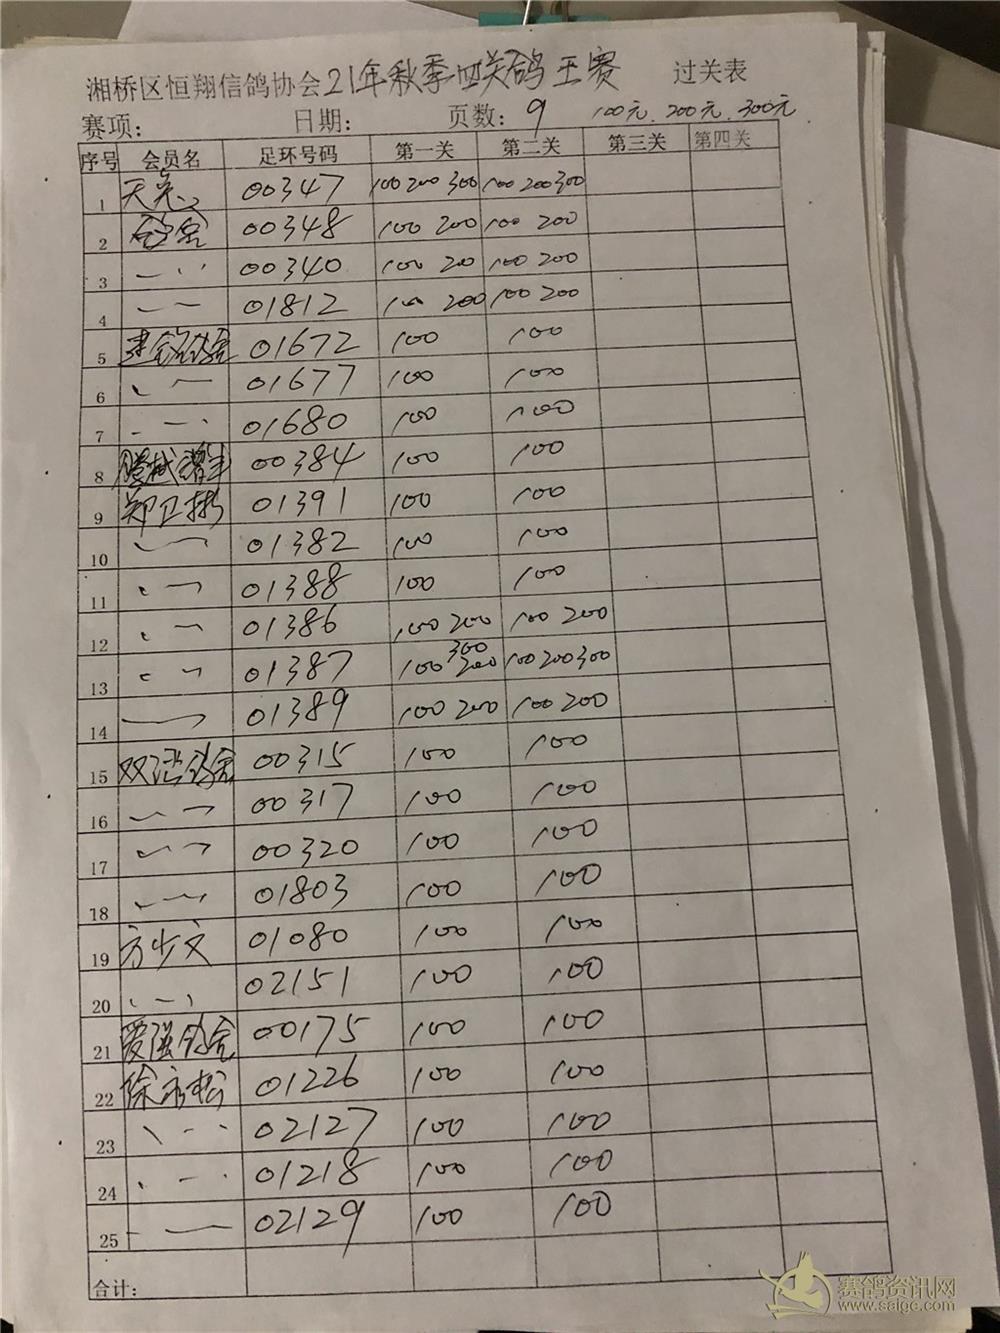 湘桥区恒翔信鸽协会21年秋季四关鸽王赛 过关表
赛项: 日期: 页数: 9 100元.200元.300元
序号 会员名 足环号码 第一关 第二关 第三关 第四关
1 00347 100 200 300 100 200 300
2 00348 100 200 100 200
3 00340 100 200 100 200
4 01812 100 200 100 200
5 01672 100 100
6 01677 100 100
7 01680 100 100
8 00384 100 100
9 郑卫彬 01391 100 100
10 01382 100 100
11 01388 100 100
12 01386 100 200 100 200
13 01387 100 200 300 100 200 300
14 01389 100 200 100 200
15 00315 100 100
16 00317 100 100
17 00320 100 100
18 01803 100 100
19 方少文 01080 100 100
20 02151 100 100
21 爱强鸽舍 00175 100 100
22 徐永松 01226 100 100
23 02127 100 100
24 01218 100 100
25 02129 100 100
合计:
赛鸽资讯网
www.saige.com